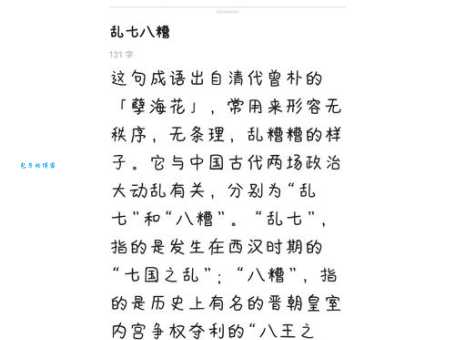 乱七八糟
131 字
这句成语出自清代曾朴的
「孽海花」，常用来形容无
秩序，无条理，乱糟糟的样
子。它与中国古代两场政治
大动乱有关，分别为“乱
七”和“八糟”。“乱七”，
指的是发生在西汉时期的
“七国之乱”；“八糟”，指
的是历史上有名的晋朝皇室
内宫争权夺利的“八王之